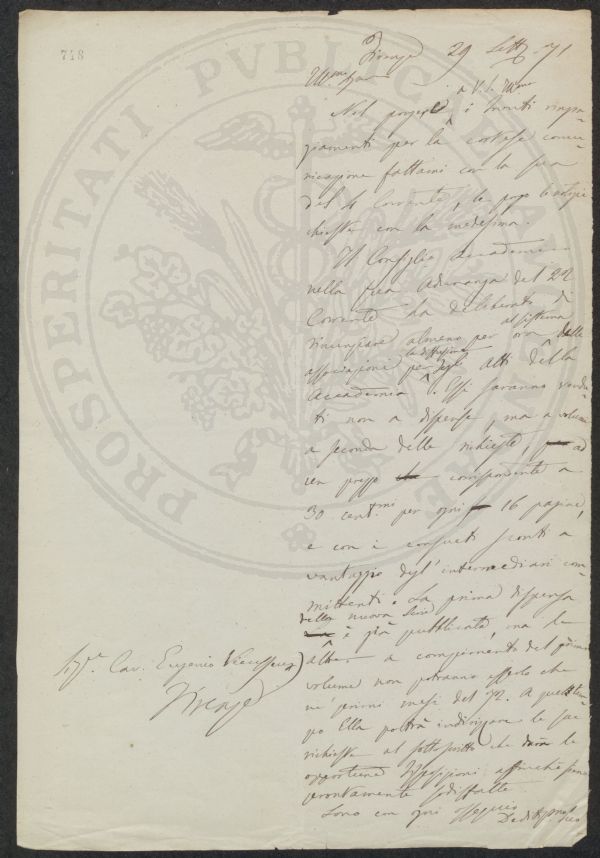 718
Firenze 29 Sett. 71
Ill.mo Sig.
a V.S. Ill.ma
Nel porgere i dovuti ringra-
ziamenti per la cortese comu-
nicazione fattami con la sua
del 4 Corrente, le porgo le notizie
chieste con la medesima.
Il Consiglio Accademico
nella sua Adunanza del 22
Corrente ha deliberato di
al sistema
rinunziare almeno per ora delle
la diffusione
associazioni per gli atti della
Accademia. Essi saranno vendu-
ti non a dispense, ma a volumi
a seconda delle richieste, ad
un prezzo corrispondente a
30 cent.mi per ogni 16 pagine,
e con i consueti sconti a
vantaggio degl'intermediari com-
mittenti. La prima dispensa
della nuova Serie
è già pubblicata, ma le
altre a compimento del primo
volume non potranno esserlo che
ne' primi mesi del 72. A quel tem-
po Ella potrà indirizzare le sue
richieste al sottoscritto che darà le
opportune disposizioni affinché siano
prontamente sodisfatte.
Sono con ogni ossequio
Sig.re Cav. Eugenio Vieusseux
Firenze
PROSPERITATI PUBLICAE